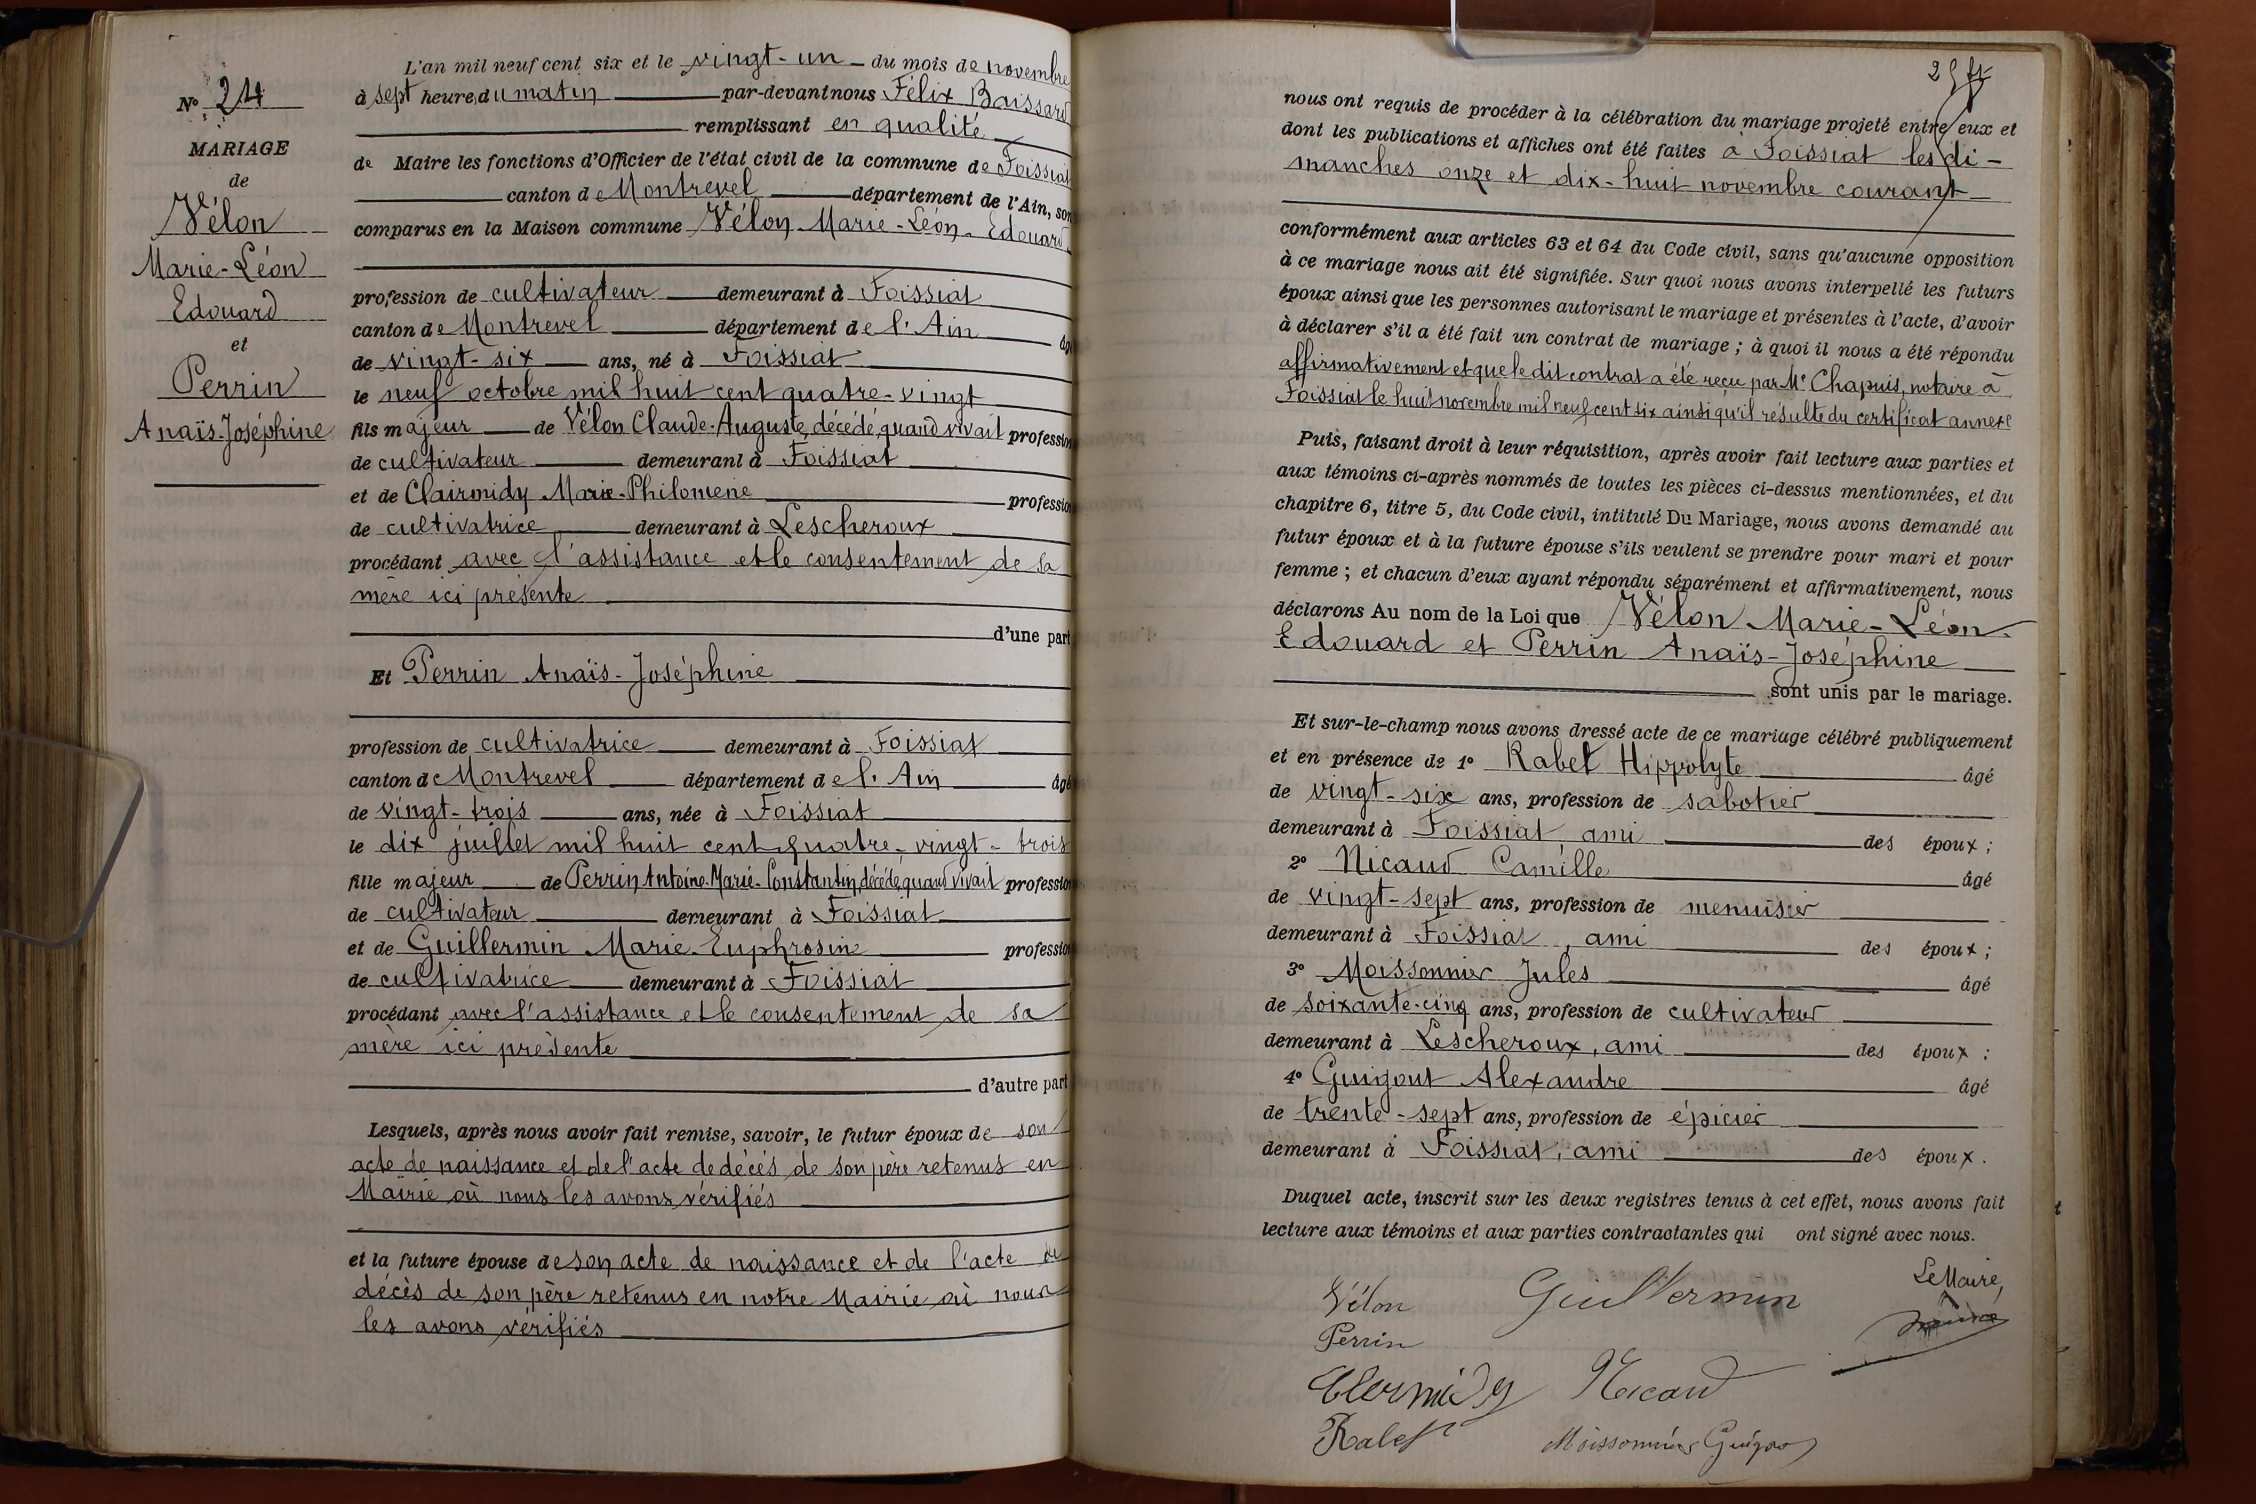 N° 24
MARIAGE
de
Vélon
Marie-Léon
Edouard
et
Perrin
Anaïs-Joséphine
L'an mil neuf cent six et le vingt-un du mois de novembre
à sept heure du matin par-devant nous Félix Baissard
remplissant en qualité
de Maire les fonctions d'Officier de l'état civil de la commune de Foissiat
canton de Montrevel département de l'Ain, son
comparus en la Maison commune Vélon Marie-Léon-Edouard
profession de cultivateur demeurant à Foissiat
canton de Montrevel département de l'Ain âgé
de vingt-six ans, né à Foissiat
le neuf octobre mil huit cent quatre-vingt
fils majeur de Vélon Claude-Auguste, décédé, quand vivait profession
de cultivateur demeurant à Foissiat
et de Clairmidy Marie-Philomène profession
de cultivatrice demeurant à Lescheroux
procédant avec l'assistance et le consentement de sa
mère ici présente
d'une part
Et Perrin Anaïs-Joséphine
profession de cultivatrice demeurant à Foissiat
canton de Montrevel département de l'Ain âgé
de vingt-trois ans, née à Foissiat
le dix juillet mil huit cent quatre-vingt-trois
fille majeur de Perrin Antoine-Marie-Constantin, décédé, quand vivait profession
de cultivateur demeurant à Foissiat
et de Guillermin Marie-Euphrosine profession
de cultivatrice demeurant à Foissiat
procédant avec l'assistance et le consentement de sa
mère ici présente
d'autre part
Lesquels, après nous avoir fait remise, savoir, le futur époux de son
acte de naissance et de l'acte de décés de son père retenus en
Mairie où nous les avons vérifiés
et la future épouse de son acte de naissance et de l'acte de
décès de son père retenus en notre Mairie où nous
les avons vérifiés
nous ont requis de procéder à la célébration du mariage projeté entre eux et
dont les publications et affiches ont été faites à Foissiat les di-
manches onze et dix-huit novembre courant
conformément aux articles 63 et 64 du Code civil, sans qu'aucune opposition
à ce mariage nous ait été signifiée. Sur quoi nous avons interpellé les futurs
époux ainsi que les personnes autorisant le mariage et présentes à l'acte, d'avoir
à déclarer s'il a été fait un contrat de mariage ; à quoi il nous a été répondu
affirmativement et que le dit contrat a été reçu par Me Chapuis, notaire à
Foissiat le huit novembre mil neuf cent six ainsi qu'il résulte du certificat annexé
Puis, faisant droit à leur réquisition, après avoir fait lecture aux parties et
aux témoins ci-après nommés de toutes les pièces ci-dessus mentionnées, et du
chapitre 6, titre 5, du Code civil, intitulé Du Mariage, nous avons demandé au
futur époux et à la future épouse s'ils veulent se prendre pour mari et pour
femme ; et chacun d'eux ayant répondu séparément et affirmativement, nous
déclarons Au nom de la Loi que Vélon Marie-Léon-
Edouard et Perrin Anaïs-Joséphine
sont unis par le mariage.
Et sur-le-champ nous avons dressé acte de ce mariage célébré publiquement
et en présence de 1° Rabet Hippolyte âgé
de vingt-six ans, profession de sabotier
demeurant à Foissiat, ami des époux ;
2° Nicaud Camille âgé
de vingt-sept ans, profession de menuisier
demeurant à Foissiat, ami des époux ;
3° Moissonnier Jules âgé
de soixante-cinq ans, profession de cultivateur
demeurant à Lescheroux, ami des époux ;
4° Guigout Alexandre âgé
de trente-sept ans, profession de épicier
demeurant à Foissiat, ami des époux.
Duquel acte, inscrit sur les deux registres tenus à cet effet, nous avons fait
lecture aux témoins et aux parties contractantes qui ont signé avec nous.
Le Maire,
Vélon Guillermin
Perrin
Clermidy Nicaud
Rabet Moissonnier